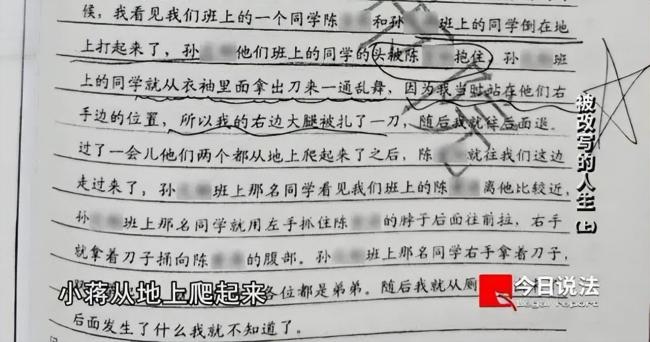 候，我看见我们班上的一个同学陈 和孙 班上的同学倒在地
上打起来了，孙 他们班上的同学的头被陈 抱住 孙 班
上的同学就从衣袖里面拿出刀来一通乱舞，因为我当时站在他们右
手边的位置，所以我的右边大腿被扎了一刀，随后我就往后面退。
过了一会儿他们两个都从地上爬起来了之后，陈 就往我们这边
走过来了，孙 班上那名同学看见我们班上的陈 离他比较近，
孙 班上那名同学就用左手抓住陈 的脖子后面往前拉，右手
就拿着刀子捅向陈 的腹部。孙 班上那名同学右手拿着刀子，
各位都是弟弟。随后我就从厕
后面发生了什么我就不知道了。
小蒋从地上爬起来
被改写的人生（上）
今日说法
Legal report